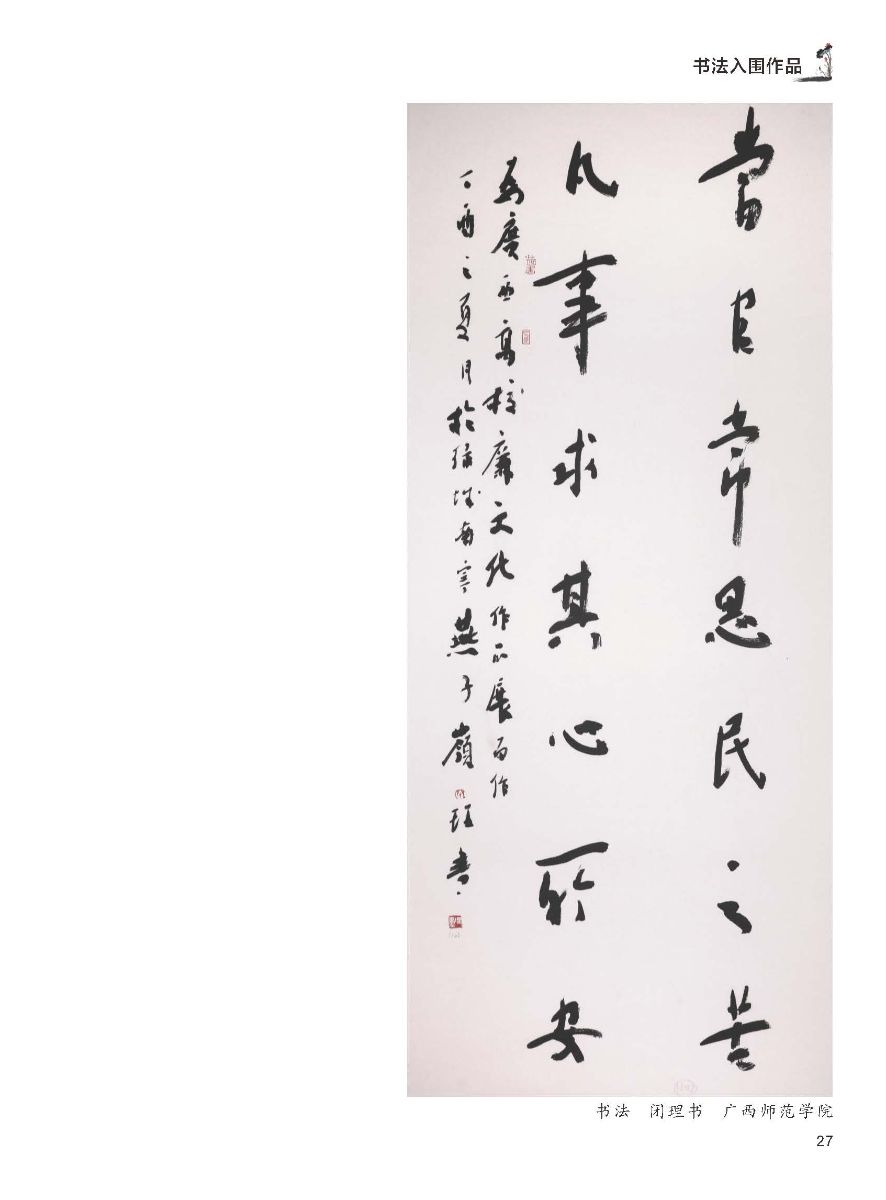 书法入围作品
當官常思民之苦
凡事求其心所安
為廣西高校廉文化作品展而作
丁酉之夏月於綠城南寧燕子嶺 書
书法 闭理书 广西师范学院
27